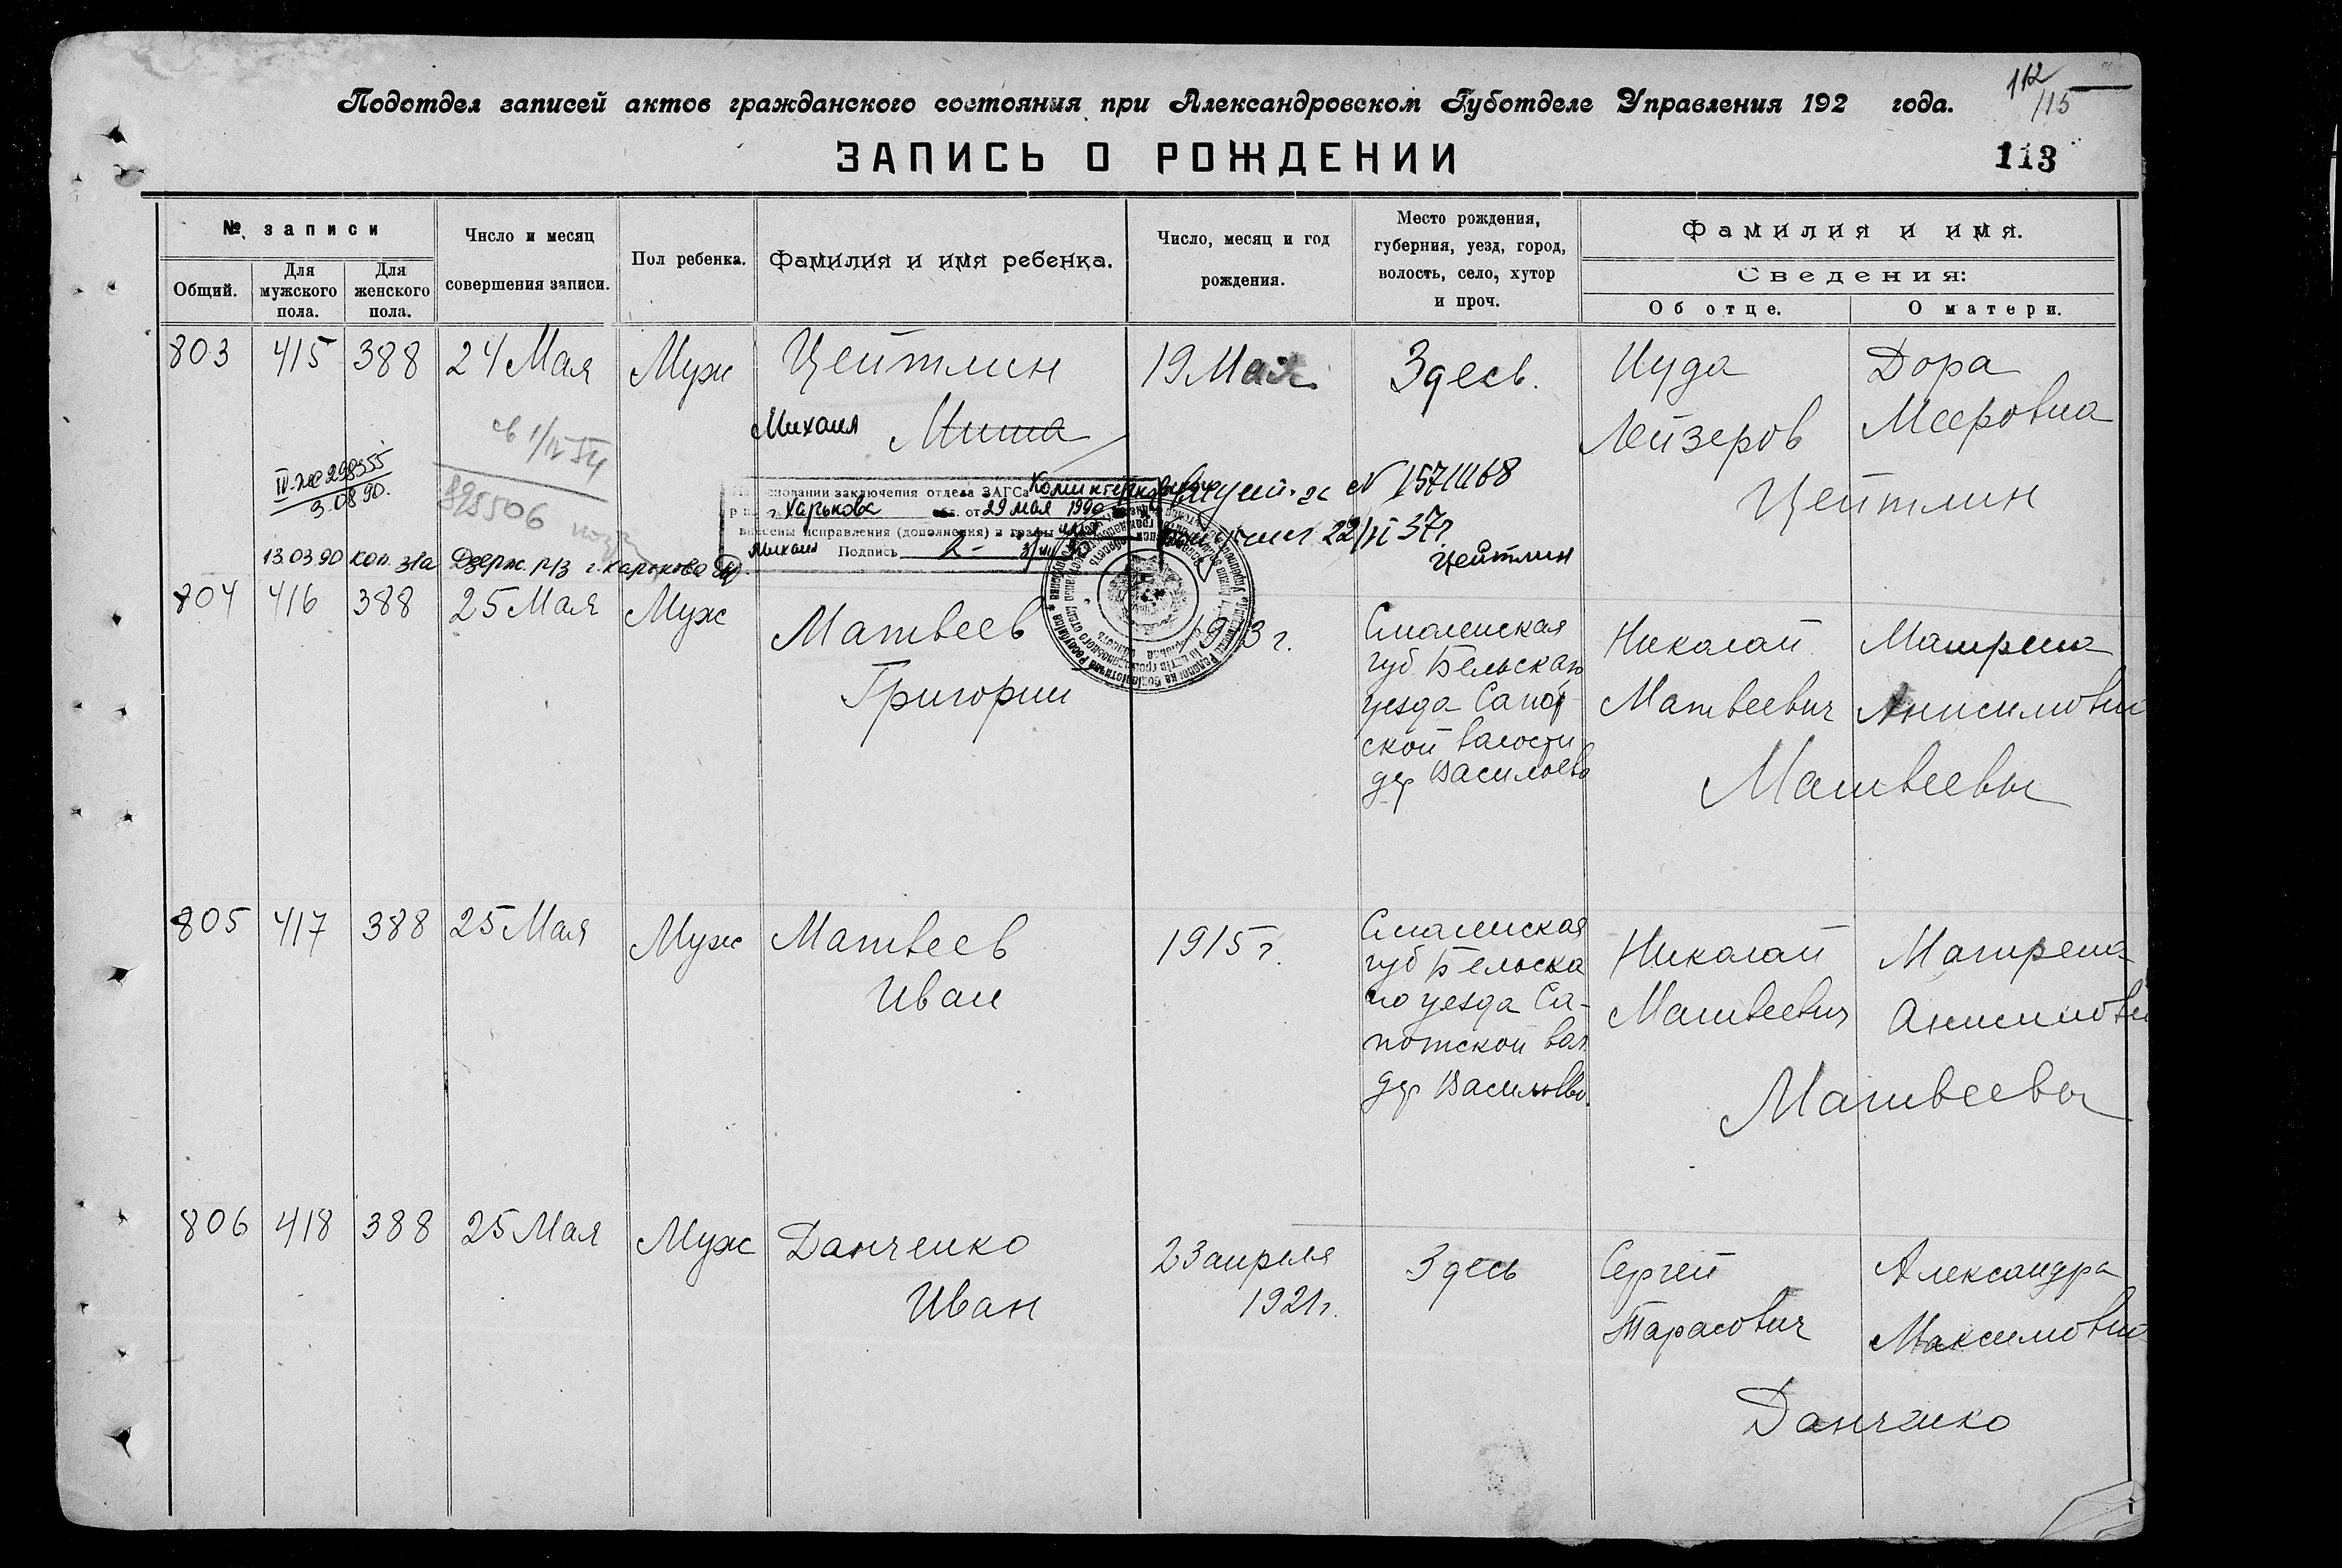 112
/115
Подотдел записей актов гражданского состояния при Александровском Губотделе Управления 192 года.
ЗАПИСЬ О РОЖДЕНИИ
113
№ записи
Общий.
Для мужского пола.
Для женского пола.
Число и месяц совершения записи.
Пол ребенка.
Фамилия и имя ребенка.
Число, месяц и год рождения.
Место рождения, губерния, уезд, город, волость, село, хутор и проч.
Фамилия и имя.
Сведения:
Об отце.
О матери.
803 415 388 24 Мая Муж Цейтлин 19 Мая Здесь. Иуда Дора
Михаил Миша Лейзеров Мееровна
Цейтлин
3.08.90.
895506
На основании заключения отдела ЗАГСа
г. Харькова от 29 мая 1990
внесены исправления (дополнения) в графы
Михаил Подпись
N 1571168
22/II 37г.
Цейтлин
13.03.90 коп. з/а Дзерж. р/з г. Харькова
804 416 388 25 Мая Муж Матвеев Смоленская Николай Матрена
Григорий губ Бельская Матвеевич Анисимовн
уезда Сапот
ской валости
дер Васильево
Матвеевы
805 417 388 25 Мая Муж Матвеев 1915 г. Смоленская Николай Матрена
Иван губ Бельска Матвеевич Анисимовн
го уезда Са-
потской вол
дер Васильево.
Матвеевы
806 418 388 25 Мая Муж Данченко 23 апреля Здесь Сергей Александра
Иван 1921г. Тарасович Максимовна
Данченко